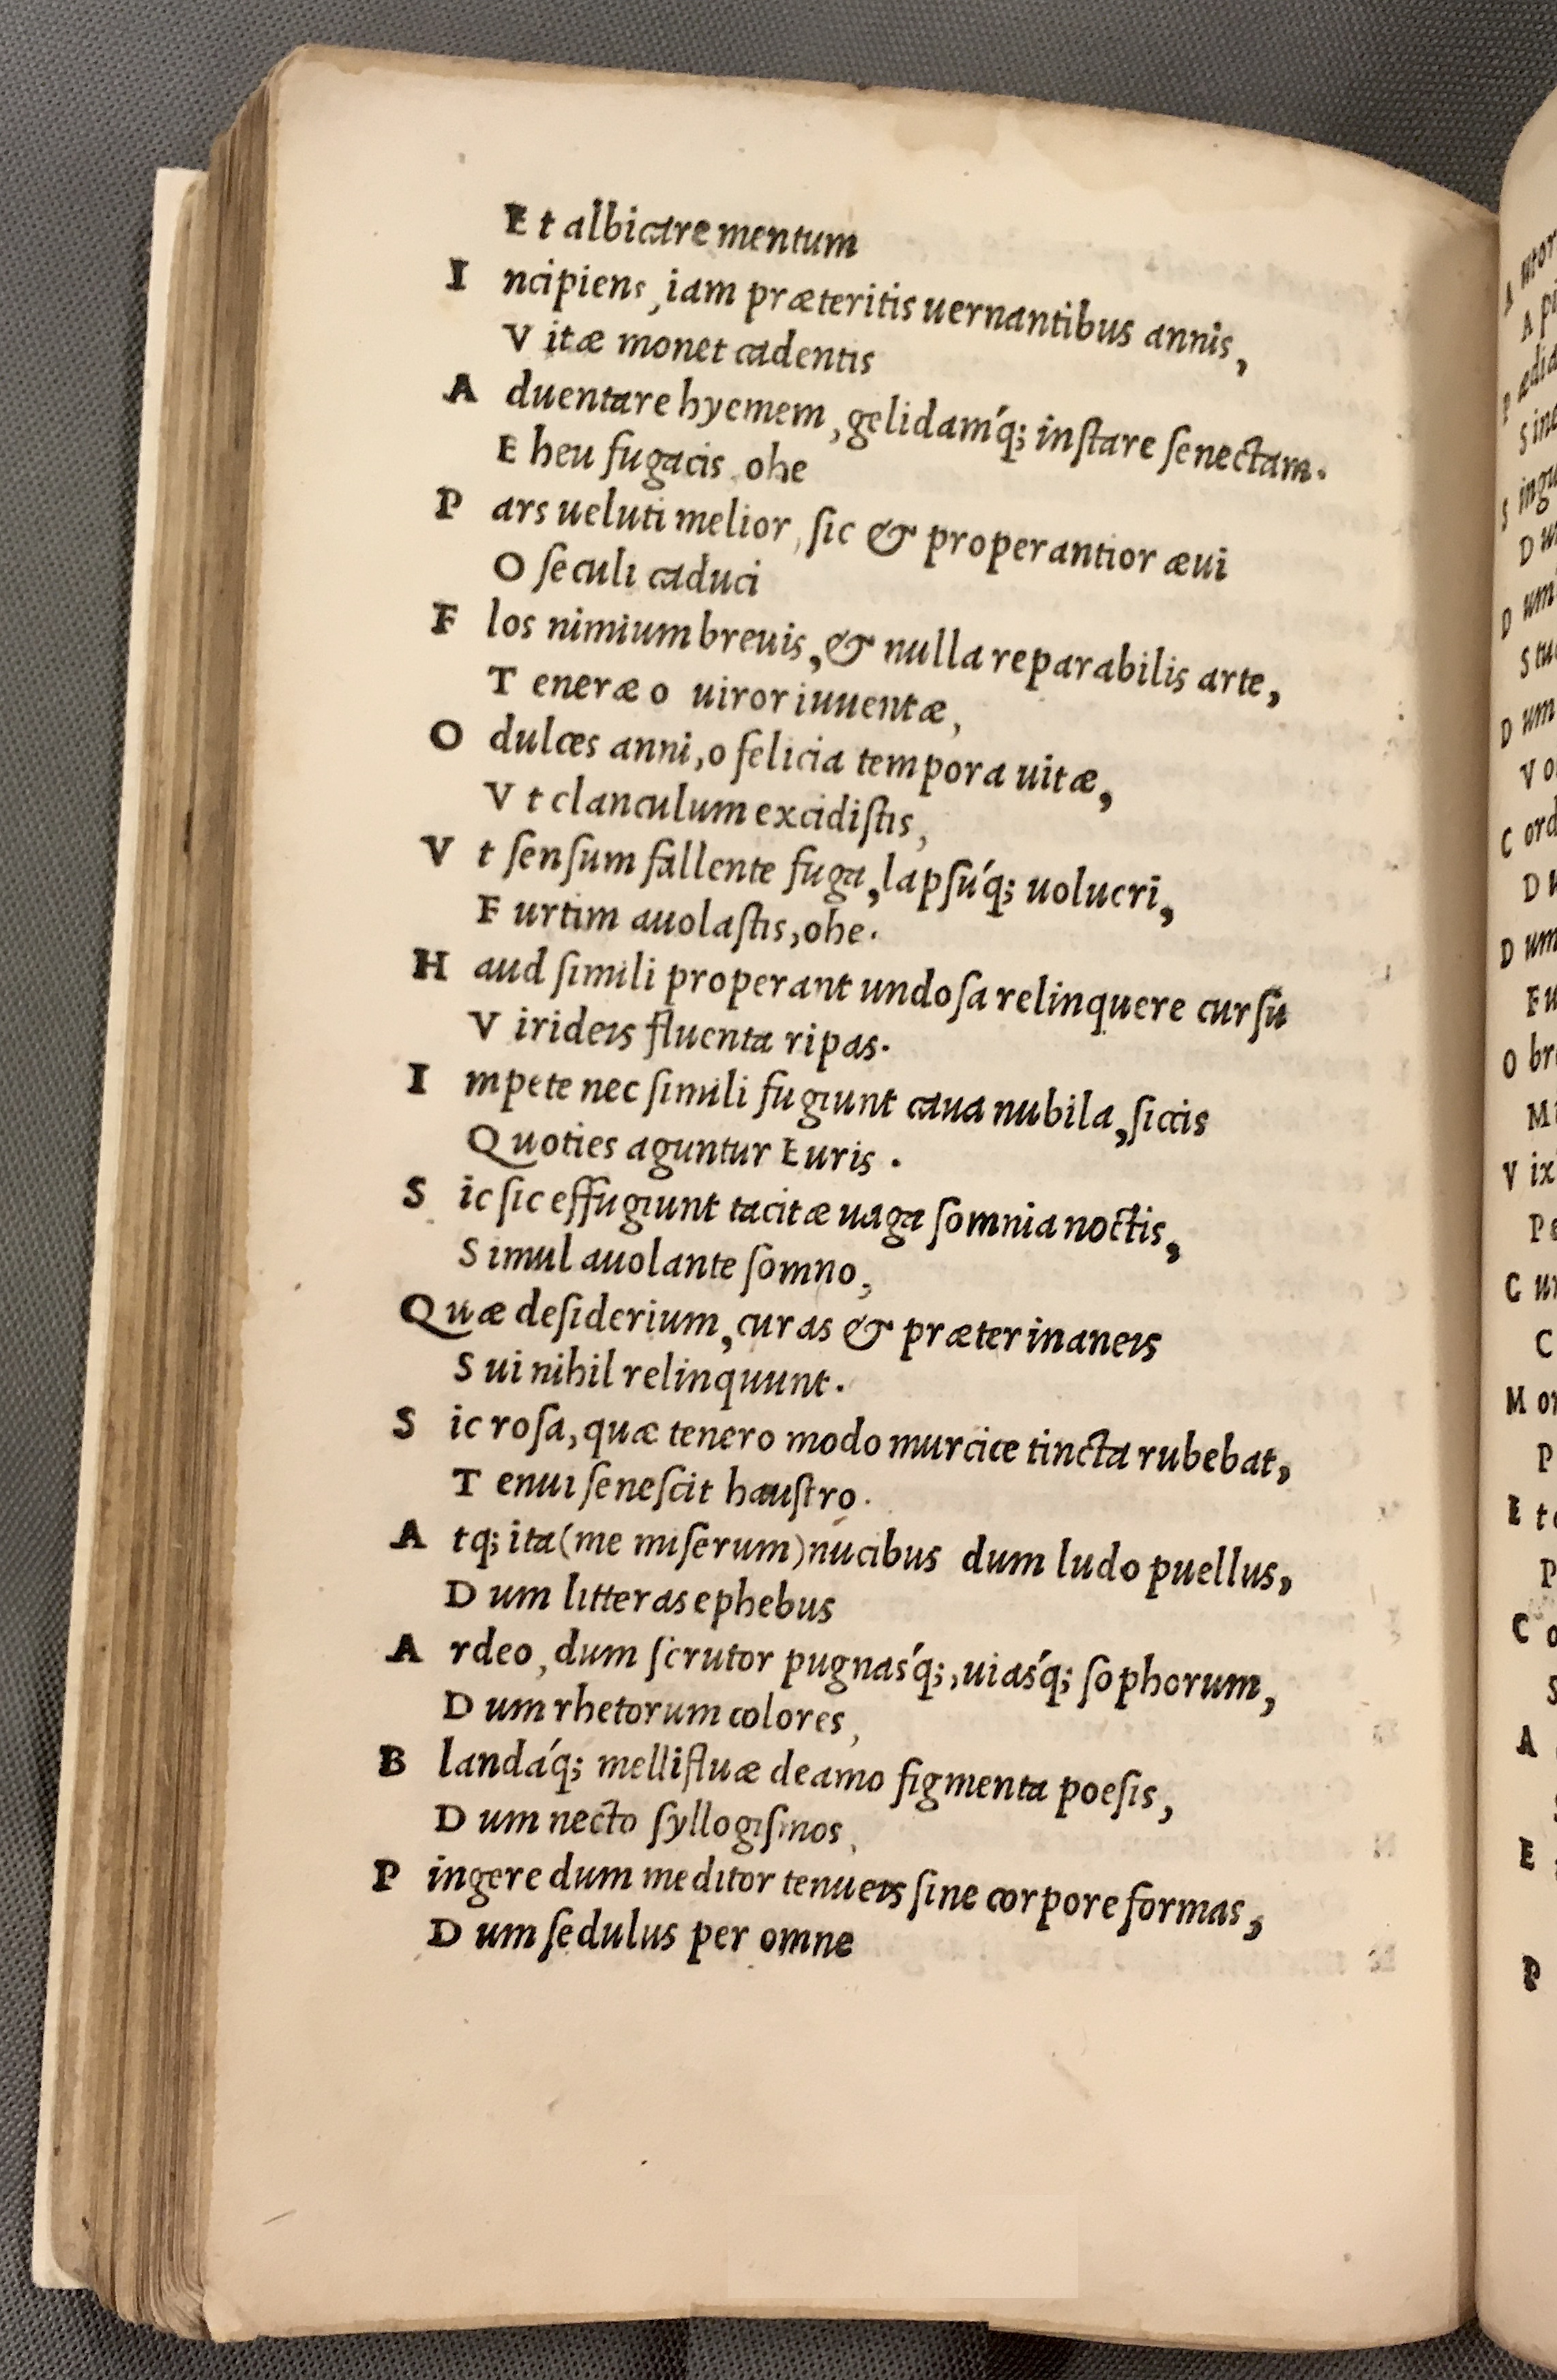 E t albicare mentum
I ncipiens, iam præteritis uernantibus annis,
V itæ monet cadentis
A duentare hyemem, gelidamq́; instare senectam.
E heu fugacis, ohe
P ars ueluti melior, sic & properantior æui
O seculi caduci
F los nimium breuis, & nulla reparabilis arte,
T eneræ o uiror iuuentæ,
O dulces anni, o felicia tempora uitæ,
V t clanculum excidistis,
V t sensum fallente fuga, lapsuq́; uolucri,
F urtim auolastis, ohe.
H aud simili properant undosa relinquere cursu
V irideis fluenta ripas.
I mpete nec simili fugiunt caua nubila, siccis
Q uoties aguntur Euris.
S ic sic effugiunt tacitæ uaga somnia noctis,
S imul auolante somno,
Q uæ desiderium, curas & præter inaneis
S ui nihil relinquunt.
S ic rosa, quæ tenero modo murcice tincta rubebat,
T enui senescit haustro.
A tq; ita (me miserum) nucibus dum ludo puellus,
D um litteras ephebus
A rdeo, dum scrutor pugnasq́;, uiasq́; sophorum,
D um rhetorum colores,
B landaq́; mellifluæ deamo figmenta poesis,
D um necto syllogismos,
P ingere dum meditor tenueis sine corpore formas,
D um sedulus per omne